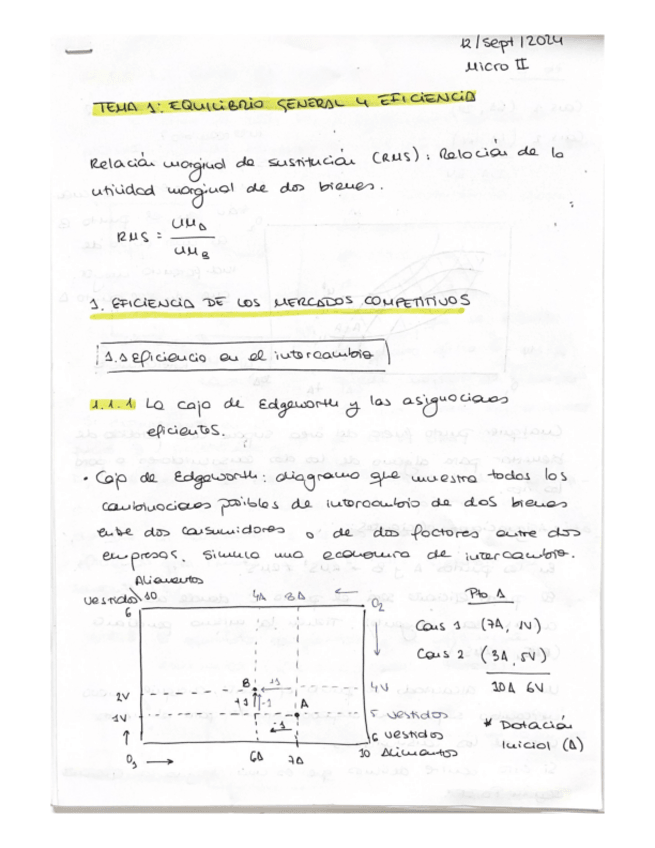 12/sept/2024
Micro II
TEMA 1: EQUILIBRIO GENERAL Y EFICIENCIA
Relación marginal de sustitución (RMS): Relación de la
utilidad marginal de dos bienes.
RMS = UM_A / UM_B
1. EFICIENCIA DE LOS MERCADOS COMPETITIVOS
1.1 Eficiencia en el intercambio
1.1.1 La caja de Edgeworth y las asignaciones
eficientes.
• Caja de Edgeworth: diagrama que muestra todas las
combinaciones posibles de intercambio de dos bienes
entre dos consumidores o de dos factores entre dos
empresas. Simula una economía de intercambio.
Alimentos
Vestido 10 4A 3A ← O2
6
Pto. A
Cons 1 (7A, 1V)
Cons 2 (3A, 5V)
10A 6V
B -1
2V +1 -1 4V
A
1V 5 vestidos
-1
↑ 6 vestidos
O1 → 6A 7A 10 Alimentos
* Dotación
inicial (A)